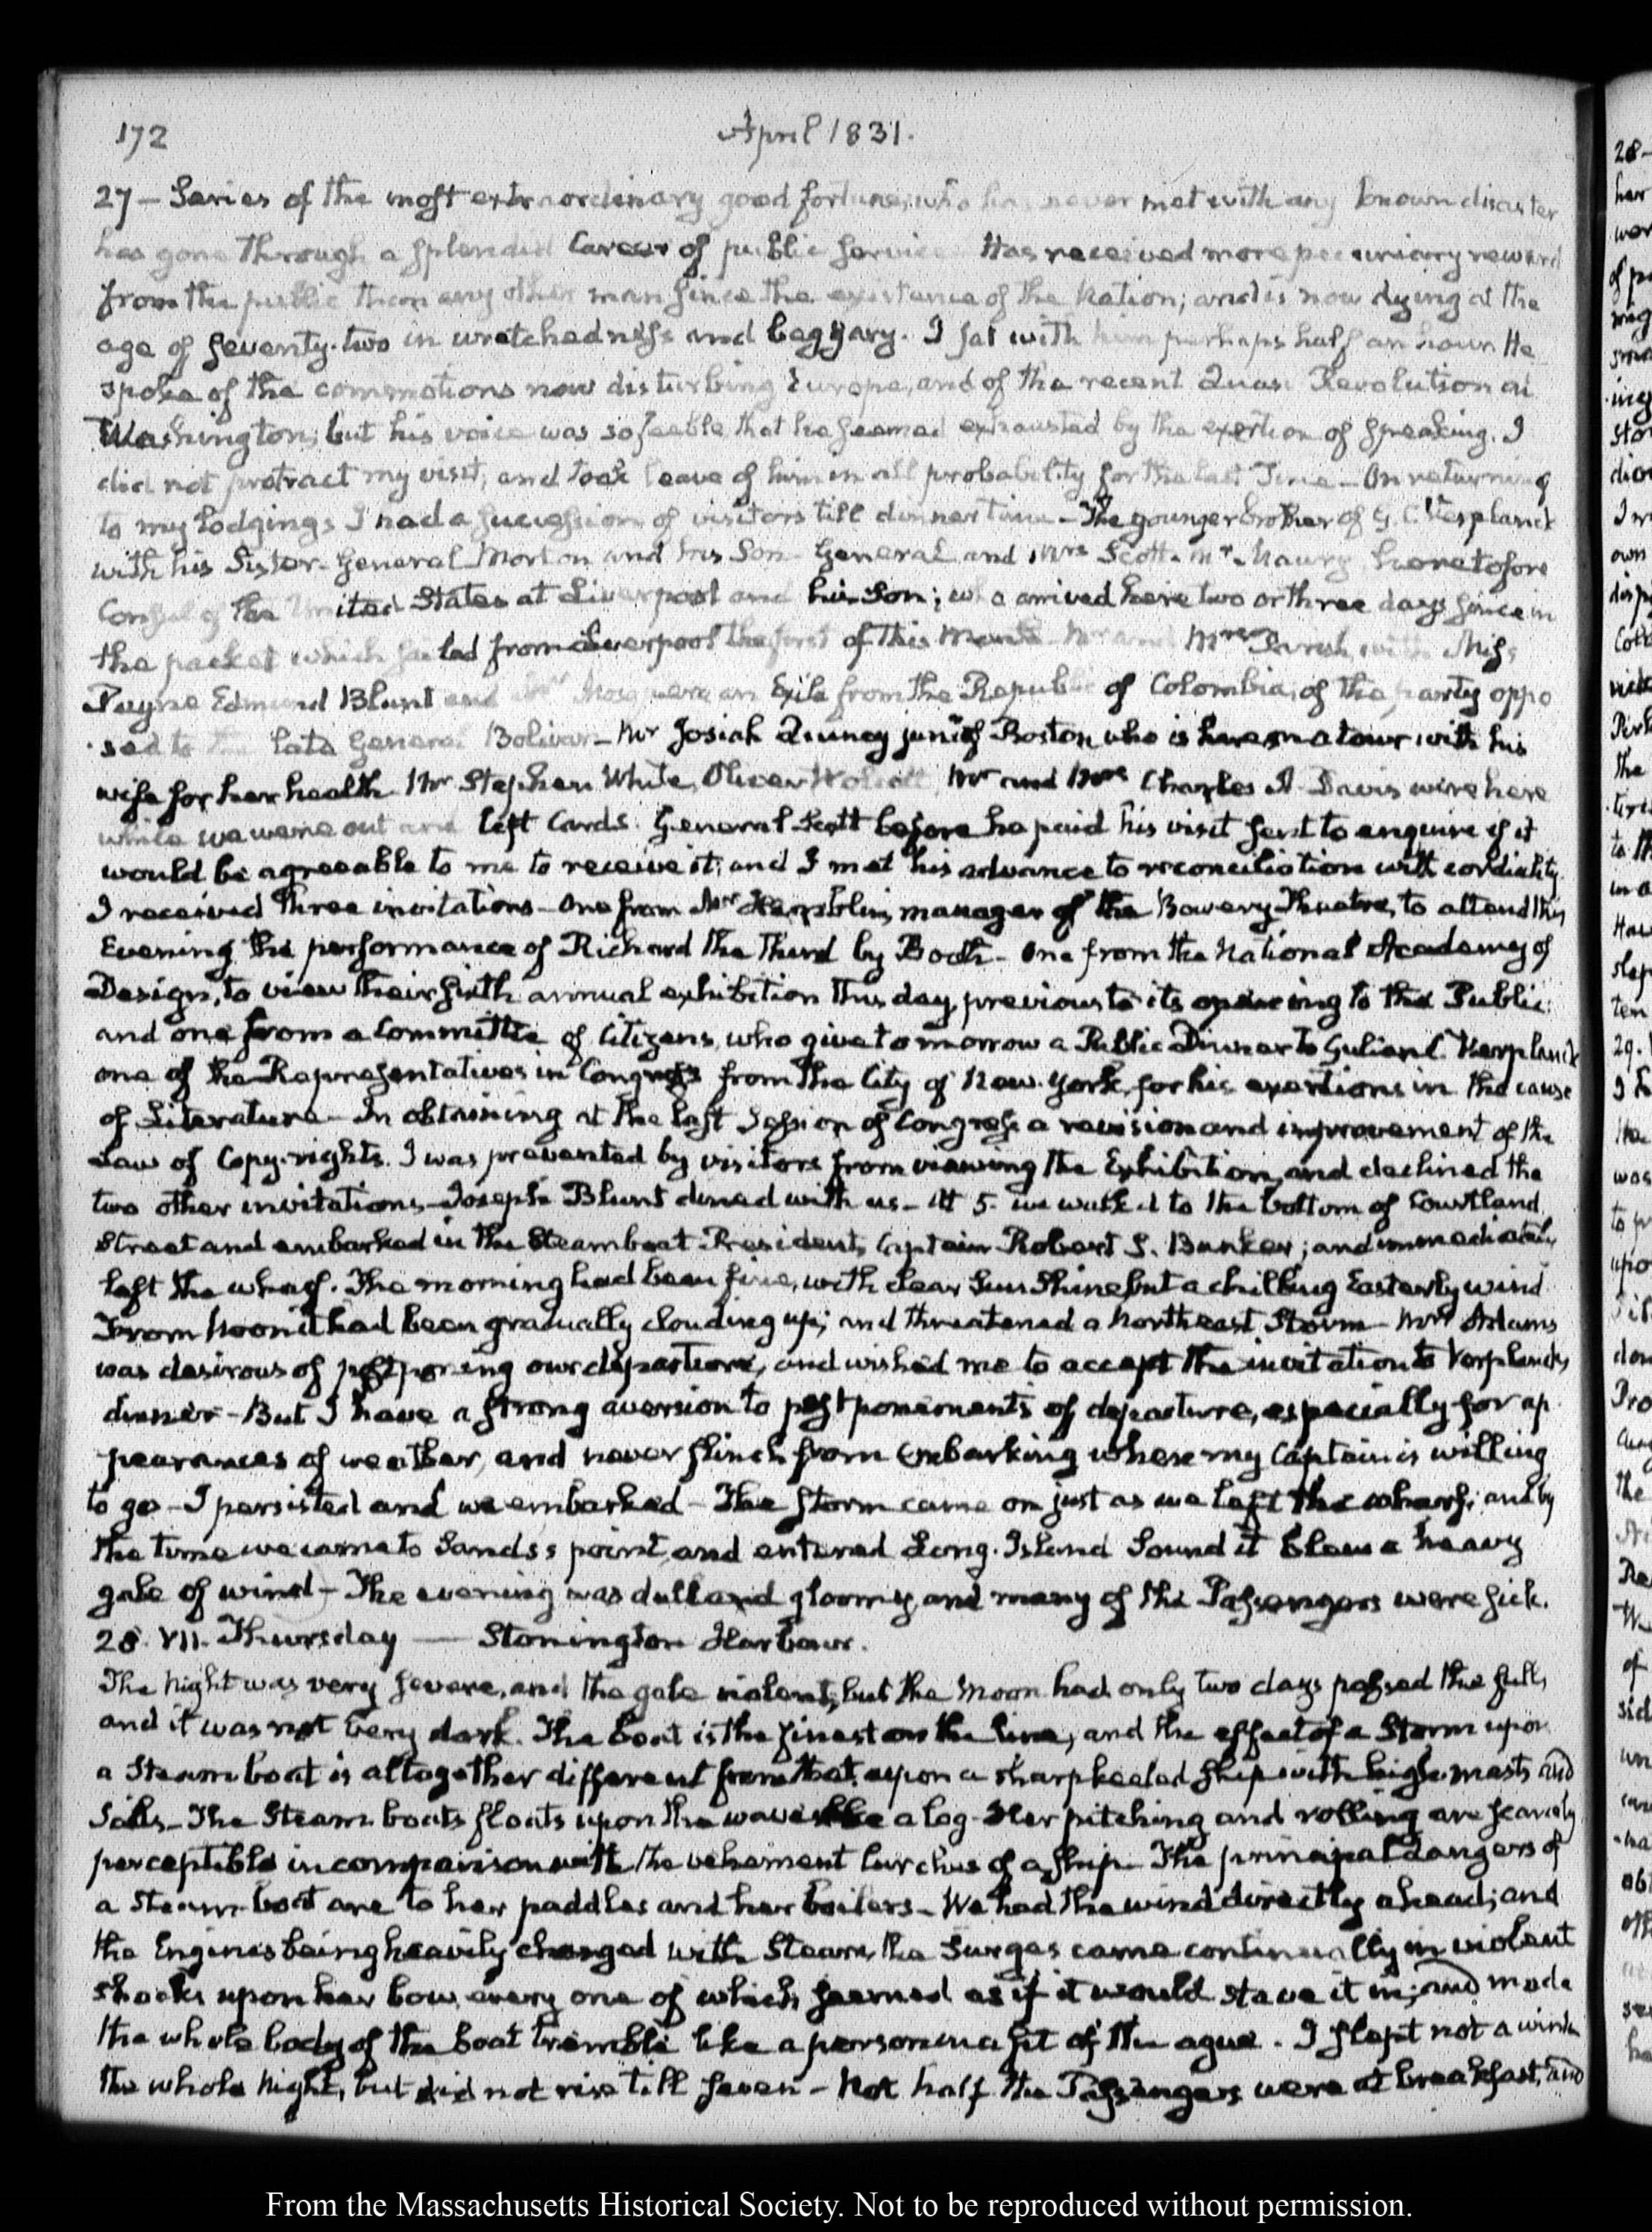 172
April 1831.
27 — Series of the most extraordinary good fortune, who has never met with any known disaster
has gone through a splendid Career of public service Has received more pecuniary reward
from the public than any other man since the existence of the Nation; and is now dying at the
age of seventy-two in wretchedness and beggary. I sat with him perhaps half an hour. He
spoke of the commotions now disturbing Europe, and of the recent Quasi Revolution at
Washington; but his voice was so feeble that he seemed exhausted by the exertion of speaking. I
did not protract my visit, and took leave of him in all probability for the last Time — On returning
to my lodgings I had a succession of visitors till dinner time — The younger brother of G. C. Verplanck
with his Sister — General Morton and his Son — General and Mrs Scott — Mr Maury heretofore
Consul of the United States at Liverpool and his Son; who arrived here two or three days since in
the packet which sailed from Liverpool the first of this Month Mr and Mrs Parish, with Miss
Payne Edmund Blunt and an Exile from the Republic of Colombia, of the party oppo
-sed to the late General Bolivar — Mr Josiah Quincy junr of Boston, who is here on a tour with his
wife for her health Mr Stephen White, Oliver Wolcott, Mr and Mrs Charles A. Davis were here
while we were out and left Cards. General Scott before he paid his visit sent to enquire if it
would be agreeable to me to receive it; and I met his advance to reconciliation with cordiality.
I received three invitations — One from Mr Hamblin, manager of the Bowery Theatre, to attend this
Evening the performance of Richard the Third by Booth — One from the National Academy of
Design, to view their sixth annual exhibition this day, previous to its opening to the Public:
and one from a Committee of Citizens, who give tomorrow a Public Dinner to Gulian C. Verplanck
one of the Representatives in Congress from the City of New York, for his exertions in the cause
of Literature — In obtaining at the last Session of Congress a revision and improvement of the
Law of Copy-rights. I was prevented by visitors from viewing the Exhibition, and declined the
two other invitations — Joseph Blunt dined with us — At 5. we walked to the bottom of Courtland
Street and embarked in the Steamboat President, Captain Robert S. Bunker; and immediately
left the wharf. The morning had been fine, with clear Sun Shine but a chilling Easterly wind
From Noon it had been gradually clouding up; and threatened a Northeast Storm — Mrs Adams
was desirous of postponing our departure, and wished me to accept the invitation to Verplanck's
dinner — But I have a strong aversion to postponements of departure, especially for ap
-pearances of weather, and never flinch from Embarking where my Captain is willing
to go — I persisted and we embarked — The storm came on just as we left the wharf; and by
the time we came to Sands's point, and entered Long-Island Sound it blew a heavy
gale of wind — The evening was dull and gloomy, and many of the Passengers were sick.
28. VII. Thursday — Stonington Harbour.
The Night was very severe, and the gale violent; but the Moon had only two days passed the full,
and it was not very dark. The boat is the finest on the line, and the effect of a Storm upon
a Steam boat is altogether different from that upon a sharp keeled ship with high masts and
Sails — The Steam boats floats upon the wave like a log — Her pitching and rolling are scarcely
perceptible in comparison with the vehement lurches of a ship — The principal dangers of
a Steam-boat are to her paddles and her boilers — We had the wind directly ahead; and
the Engines being heavily charged with Steam, the Surges came continually in violent
shocks upon her bow, every one of which seemed as if it would stave it in; and made
the whole body of the boat tremble like a person in a fit of the ague. I slept not a wink
the whole Night, but did not rise till seven — Not half the Passengers were at breakfast, and
From the Massachusetts Historical Society. Not to be reproduced without permission.